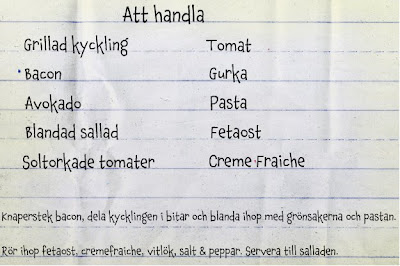 Att handla
Grillad kyckling Tomat
Bacon Gurka
Avokado Pasta
Blandad sallad Fetaost
Soltorkade tomater Creme Fraiche
Knaperstek bacon, dela kycklingen i bitar och blanda ihop med grönsakerna och pastan.
Rör ihop fetaost, cremefraiche, vitlök, salt & peppar. Servera till salladen.